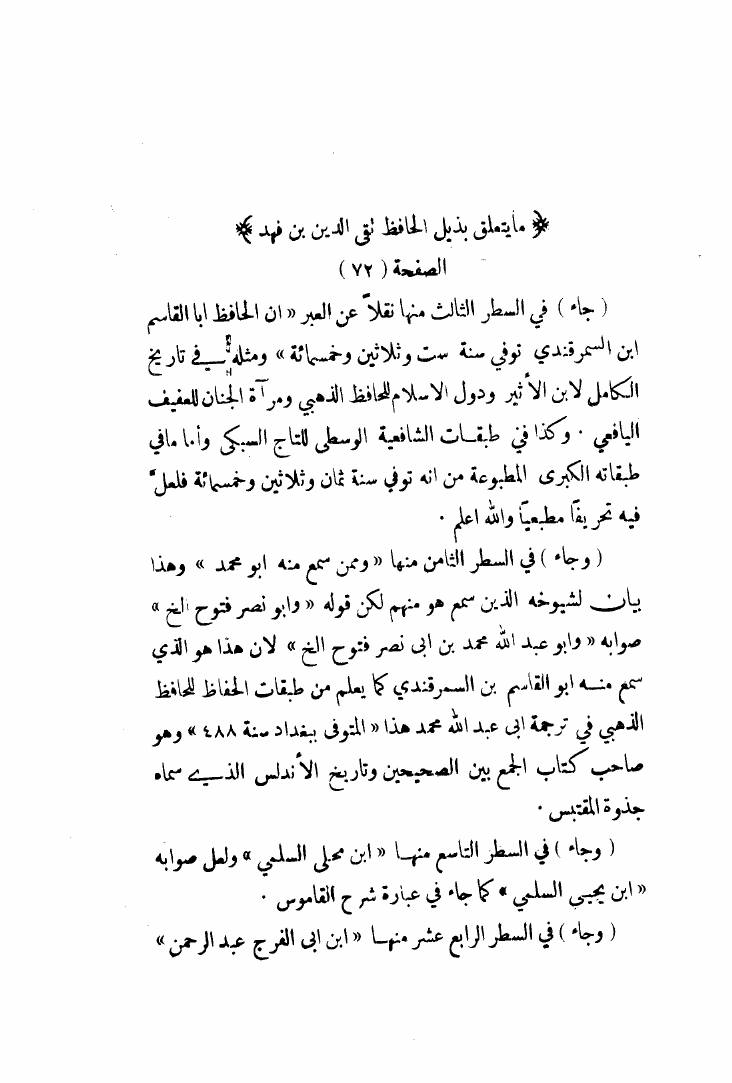 ﴿ ما يتعلق بذيل الحافظ تقي الدين بن فهد ﴾
الصفحة ( ٧٢ )
( جاء ) في السطر الثالث منها نقلاً عن العبر « ان الحافظ ابا القاسم
ابن السمرقندي توفي سنة ست وثلاثين وخمسمائة » ومثله في تاريخ
الكامل لابن الأثير ودول الاسلام للحافظ الذهبي ومرآة الجنان للعفيف
اليافعي . وكذا في طبقات الشافعية الوسطى للتاج السبكي وأما مافي
طبقاته الكبرى المطبوعة من انه توفي سنة ثمان وثلاثين وخمسمائة فلعلّ
فيه تحريفًا مطبعيًا والله اعلم .
( وجاء ) في السطر الثامن منها « وممن سمع منه ابو محمد » وهذا
بيان لشيوخه الذين سمع هو منهم لكن قوله « وابو نصر فتوح الخ »
صوابه « وابو عبد الله محمد بن ابى نصر فتوح الخ » لان هذا هو الذي
سمع منه ابو القاسم بن السمرقندي كما يعلم من طبقات الحفاظ للحافظ
الذهبي في ترجمة ابى عبد الله محمد هذا « المتوفى ببغداد سنة ٤٨٨ » وهو
صاحب كتاب الجمع بين الصحيحين وتاريخ الأندلس الذي سماه
جذوة المقتبس .
( وجاء ) في السطر التاسع منها « ابن محلى السلمي » ولعل صوابه
« ابن يحيى السلمي » كما جاء في عبارة شرح القاموس .
( وجاء ) في السطر الرابع عشر منها « ابن ابى الفرج عبد الرحمن »